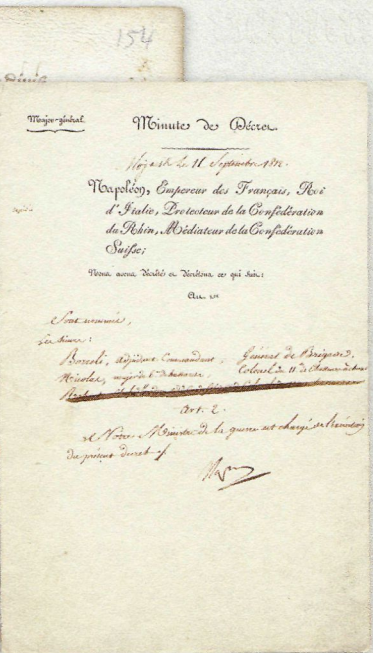 154
Major-général.
Minute de Décret.
Mojaisk le 11 Septembre 1812.
Napoléon, Empereur des Français, Roi
d'Italie, Protecteur de la Confédération
du Rhin, Médiateur de la Confédération
Suisse;
Nous avons décrété et décrétons ce qui suit:
Art. 1er
Sont nommés,
Les Sieurs:
Borrelli, adjudant Commandant, Général de Brigade,
Nicolas, major du de chasseurs, Colonel du 11 de Chasseurs
Art. 2.
Notre Ministre de la guerre est chargé de l'exécution
du présent décret